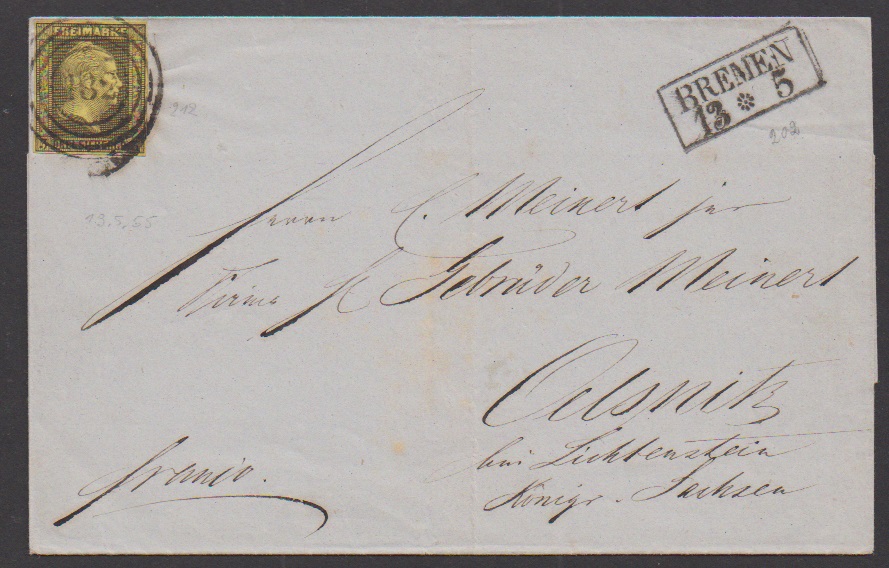 FREIMARKE
182
BREMEN
13 * 5
212
202
13.5.55
Herrn C. Meinert jun
Firma Gebrüder Meinert
Oelsnitz
bei Lichtenstein
Königr. Sachsen
franco.